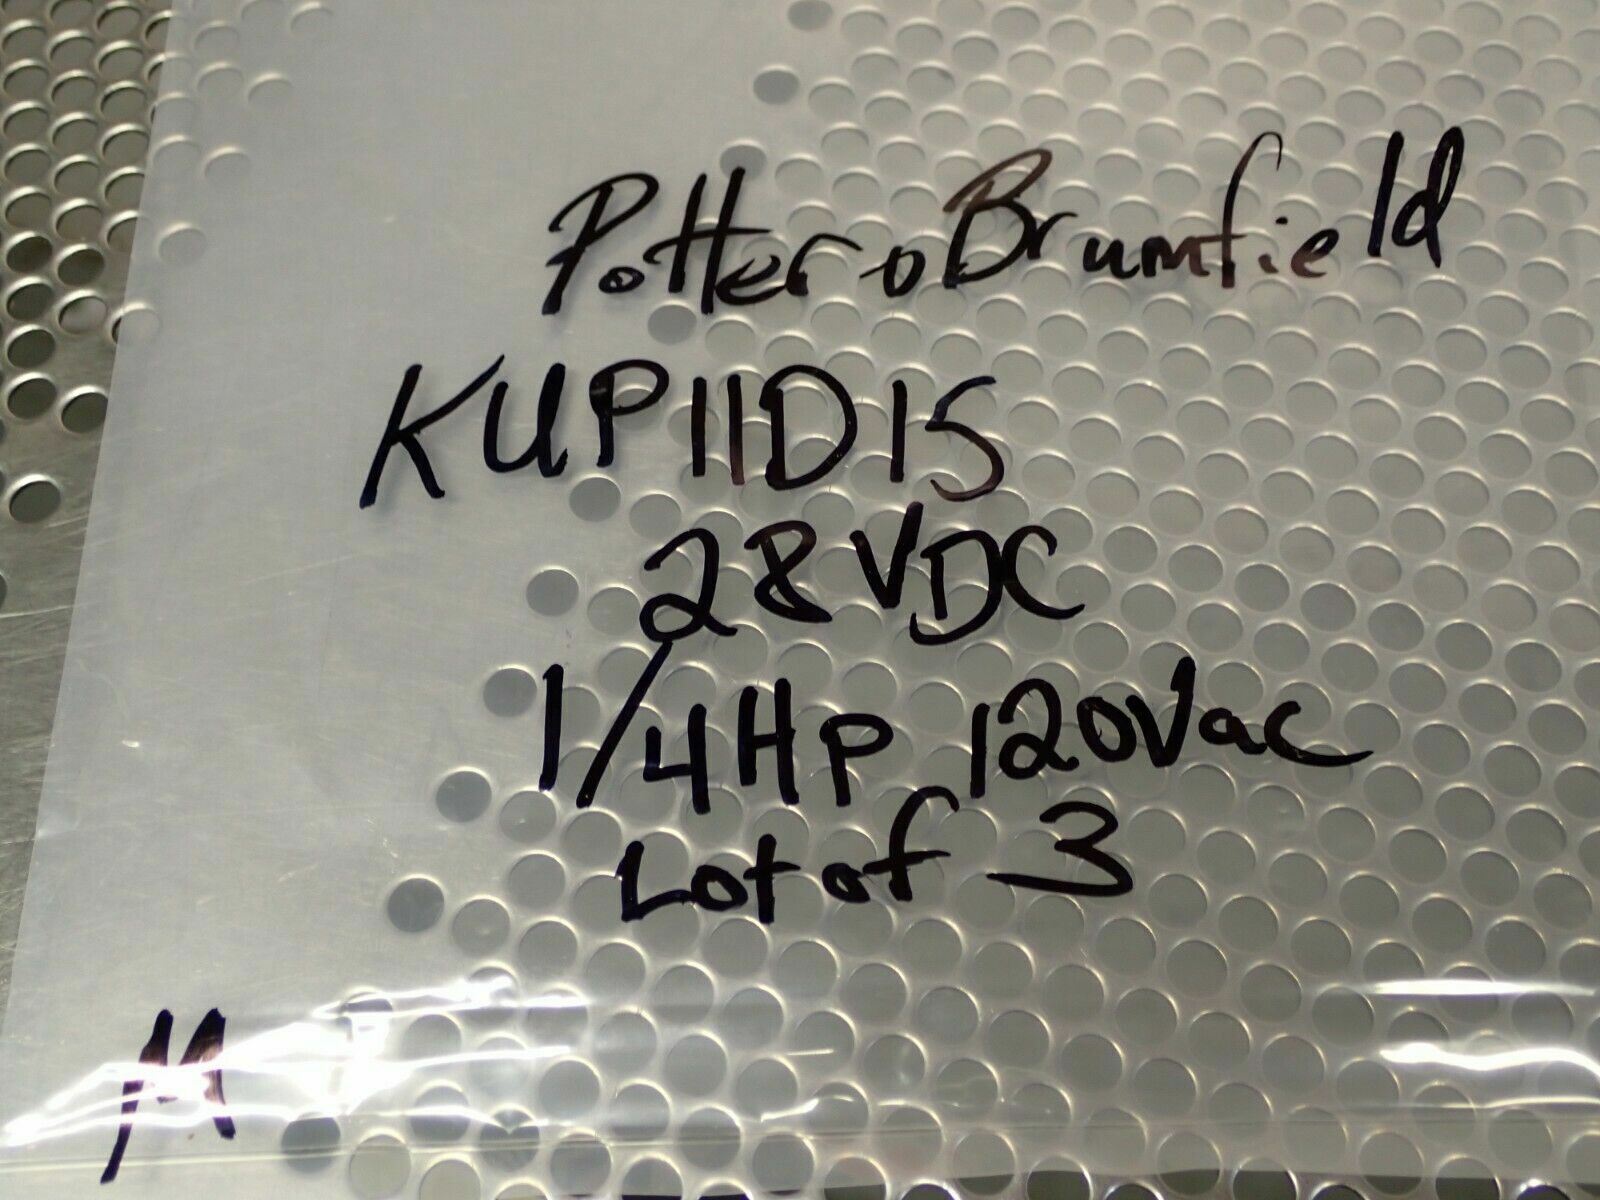 Potter & Brumfield
KUP11D15
28VDC
1/4HP 120Vac
Lot of 3
M